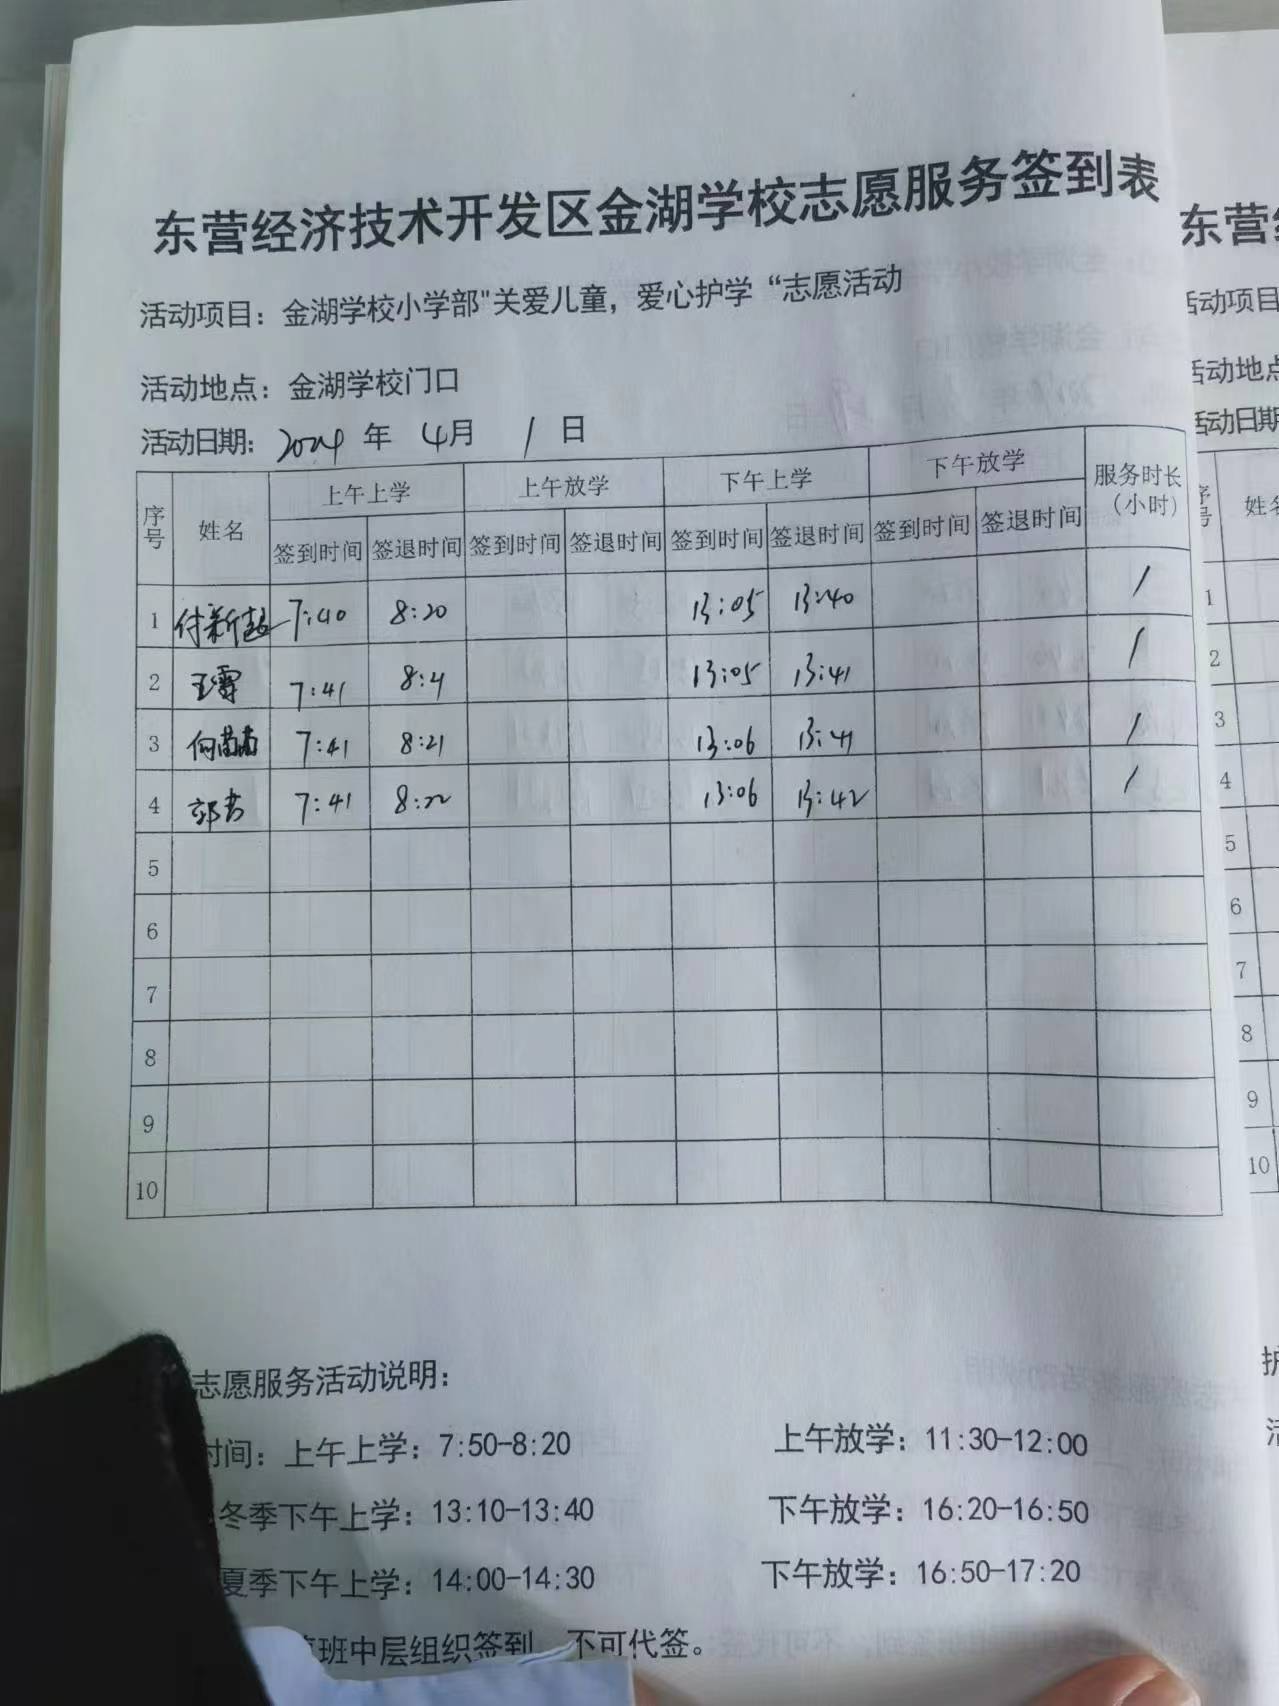 东营经济技术开发区金湖学校志愿服务签到表
活动项目：金湖学校小学部"关爱儿童，爱心护学“志愿活动
活动地点：金湖学校门口
活动日期：2024 年 4月 1 日
序号 姓名 上午上学 上午放学 下午上学 下午放学 服务时长（小时）
签到时间 签退时间 签到时间 签退时间 签到时间 签退时间 签到时间 签退时间
1 付新超 7:40 8:20 13:05 13:40 1
2 王霄 7:41 8:21 13:05 13:41 1
3 7:41 8:21 13:06 13:41 1
4 7:41 8:22 13:06 13:42 1
5
6
7
8
9
10
志愿服务活动说明：
时间：上午上学：7:50-8:20 上午放学：11:30-12:00
冬季下午上学：13:10-13:40 下午放学：16:20-16:50
夏季下午上学：14:00-14:30 下午放学：16:50-17:20
班中层组织签到，不可代签。
东营
活动项目
活动地点
活动日期
序号 姓名
1
2
3
4
5
6
7
8
9
10
护
活